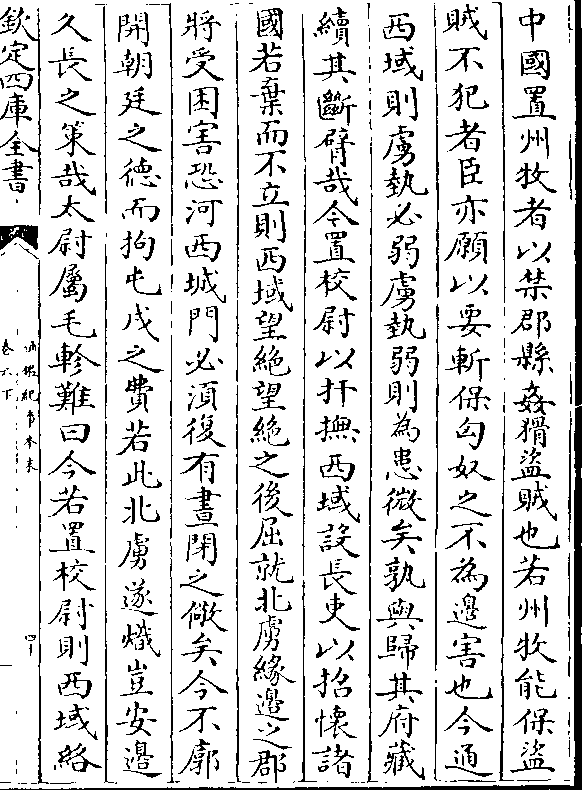 中國置州牧者以禁郡縣姦猾盜賊也若州牧能保盜
賊不犯者臣亦願以要斬保匈奴之不為邊害也今通
西域則虜埶必弱虜埶弱則為患微矣孰與歸其府藏
續其斷臂哉今置校尉以扞撫西域設長吏以招懷諸
國若棄而不立則西域望絶望絶之後屈就北虜緣邊之郡
將受困害恐河西城門必須復有晝閉之儆矣今不廓
開朝廷之德而拘屯戍之費若此北虜遂熾豈安邊
久長之策哉太尉屬毛軫難曰今若置校尉則西域絡
欽定四庫全書
通鑑紀事本末
卷六下